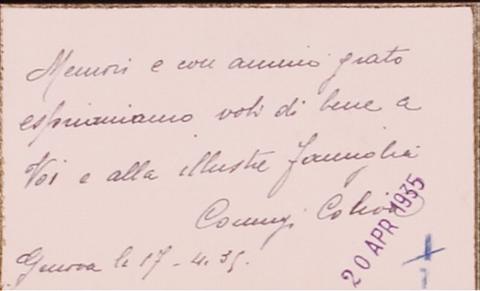 Memori e con animo grato
esprimiamo voti di bene a
Voi e alla illustre famiglia
Coniugi
Genova lì 17-4.35.
20 APR 1935